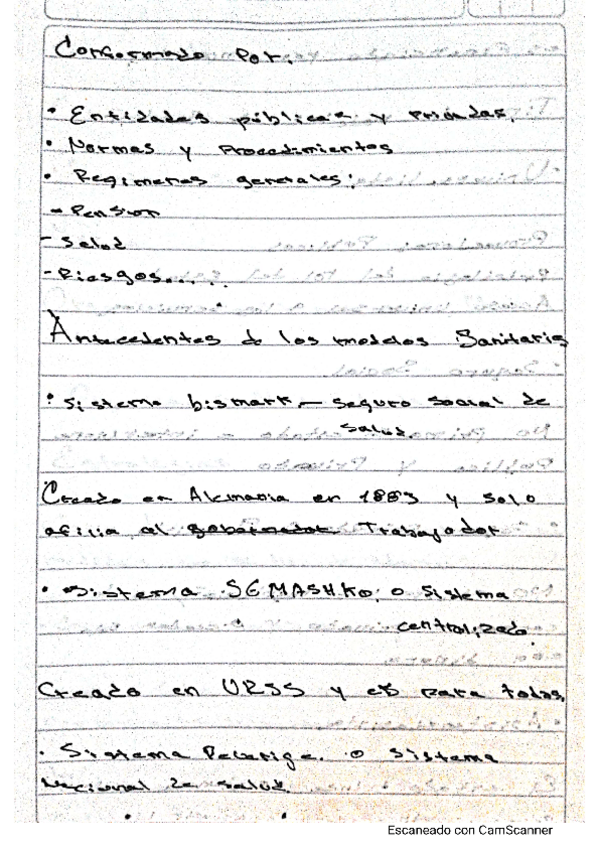 Conformado Por:
• Entidades públicas y privadas.
• Normas y Procedimientos
• Regimenes generales:
- Pension
- Salud
- Riesgos....
Antecedentes de los modelos Sanitaris
• Sistema bismark — seguro social de
salud
Creado en Alemania en 1883 y solo
afilia al gobernador Trabajador
• Sistema SEMASHKO, o Sistema
centralizado.
Creado en URSS y es para todos,
• Sistema o Sistema
Nacional de salud
Escaneado con CamScanner